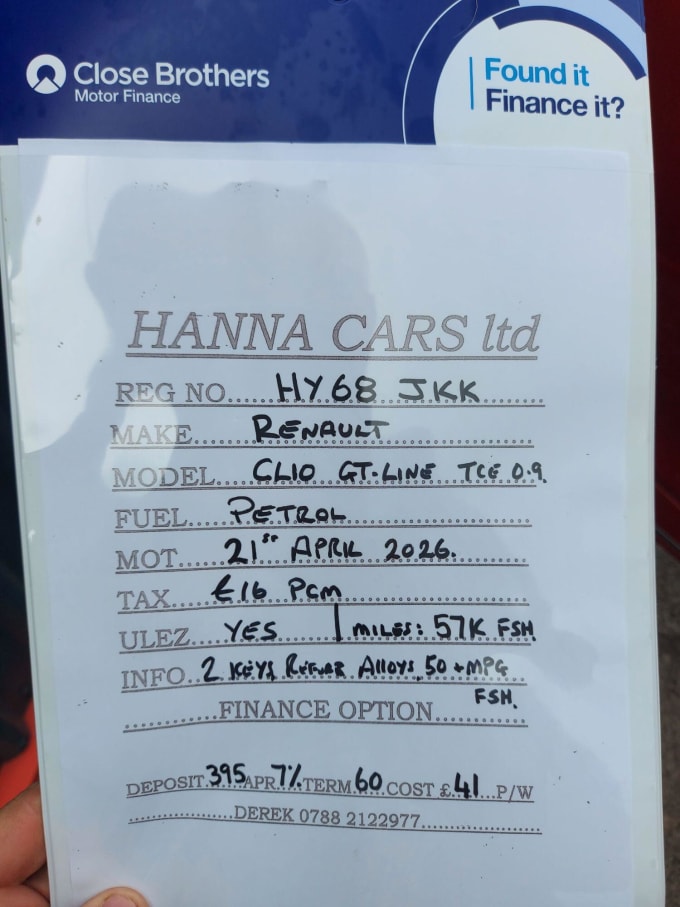 Close Brothers
Motor Finance
Found it
Finance it?
HANNA CARS ltd
REG NO.....HY68 JKK
MAKE.....RENAULT
MODEL...CLIO GT-LINE TCE 0.9
FUEL.....PETROL
MOT.....21ST APRIL 2026.
TAX.....£16 PCM
ULEZ....YES | MILES: 57K FSH
INFO..2 KEYS REFURB ALLOYS, 50+MPG
FSH.
............FINANCE OPTION............
DEPOSIT.395 APR.7% TERM.60 COST £.41...P/W
..................DEREK 0788 2122977..................